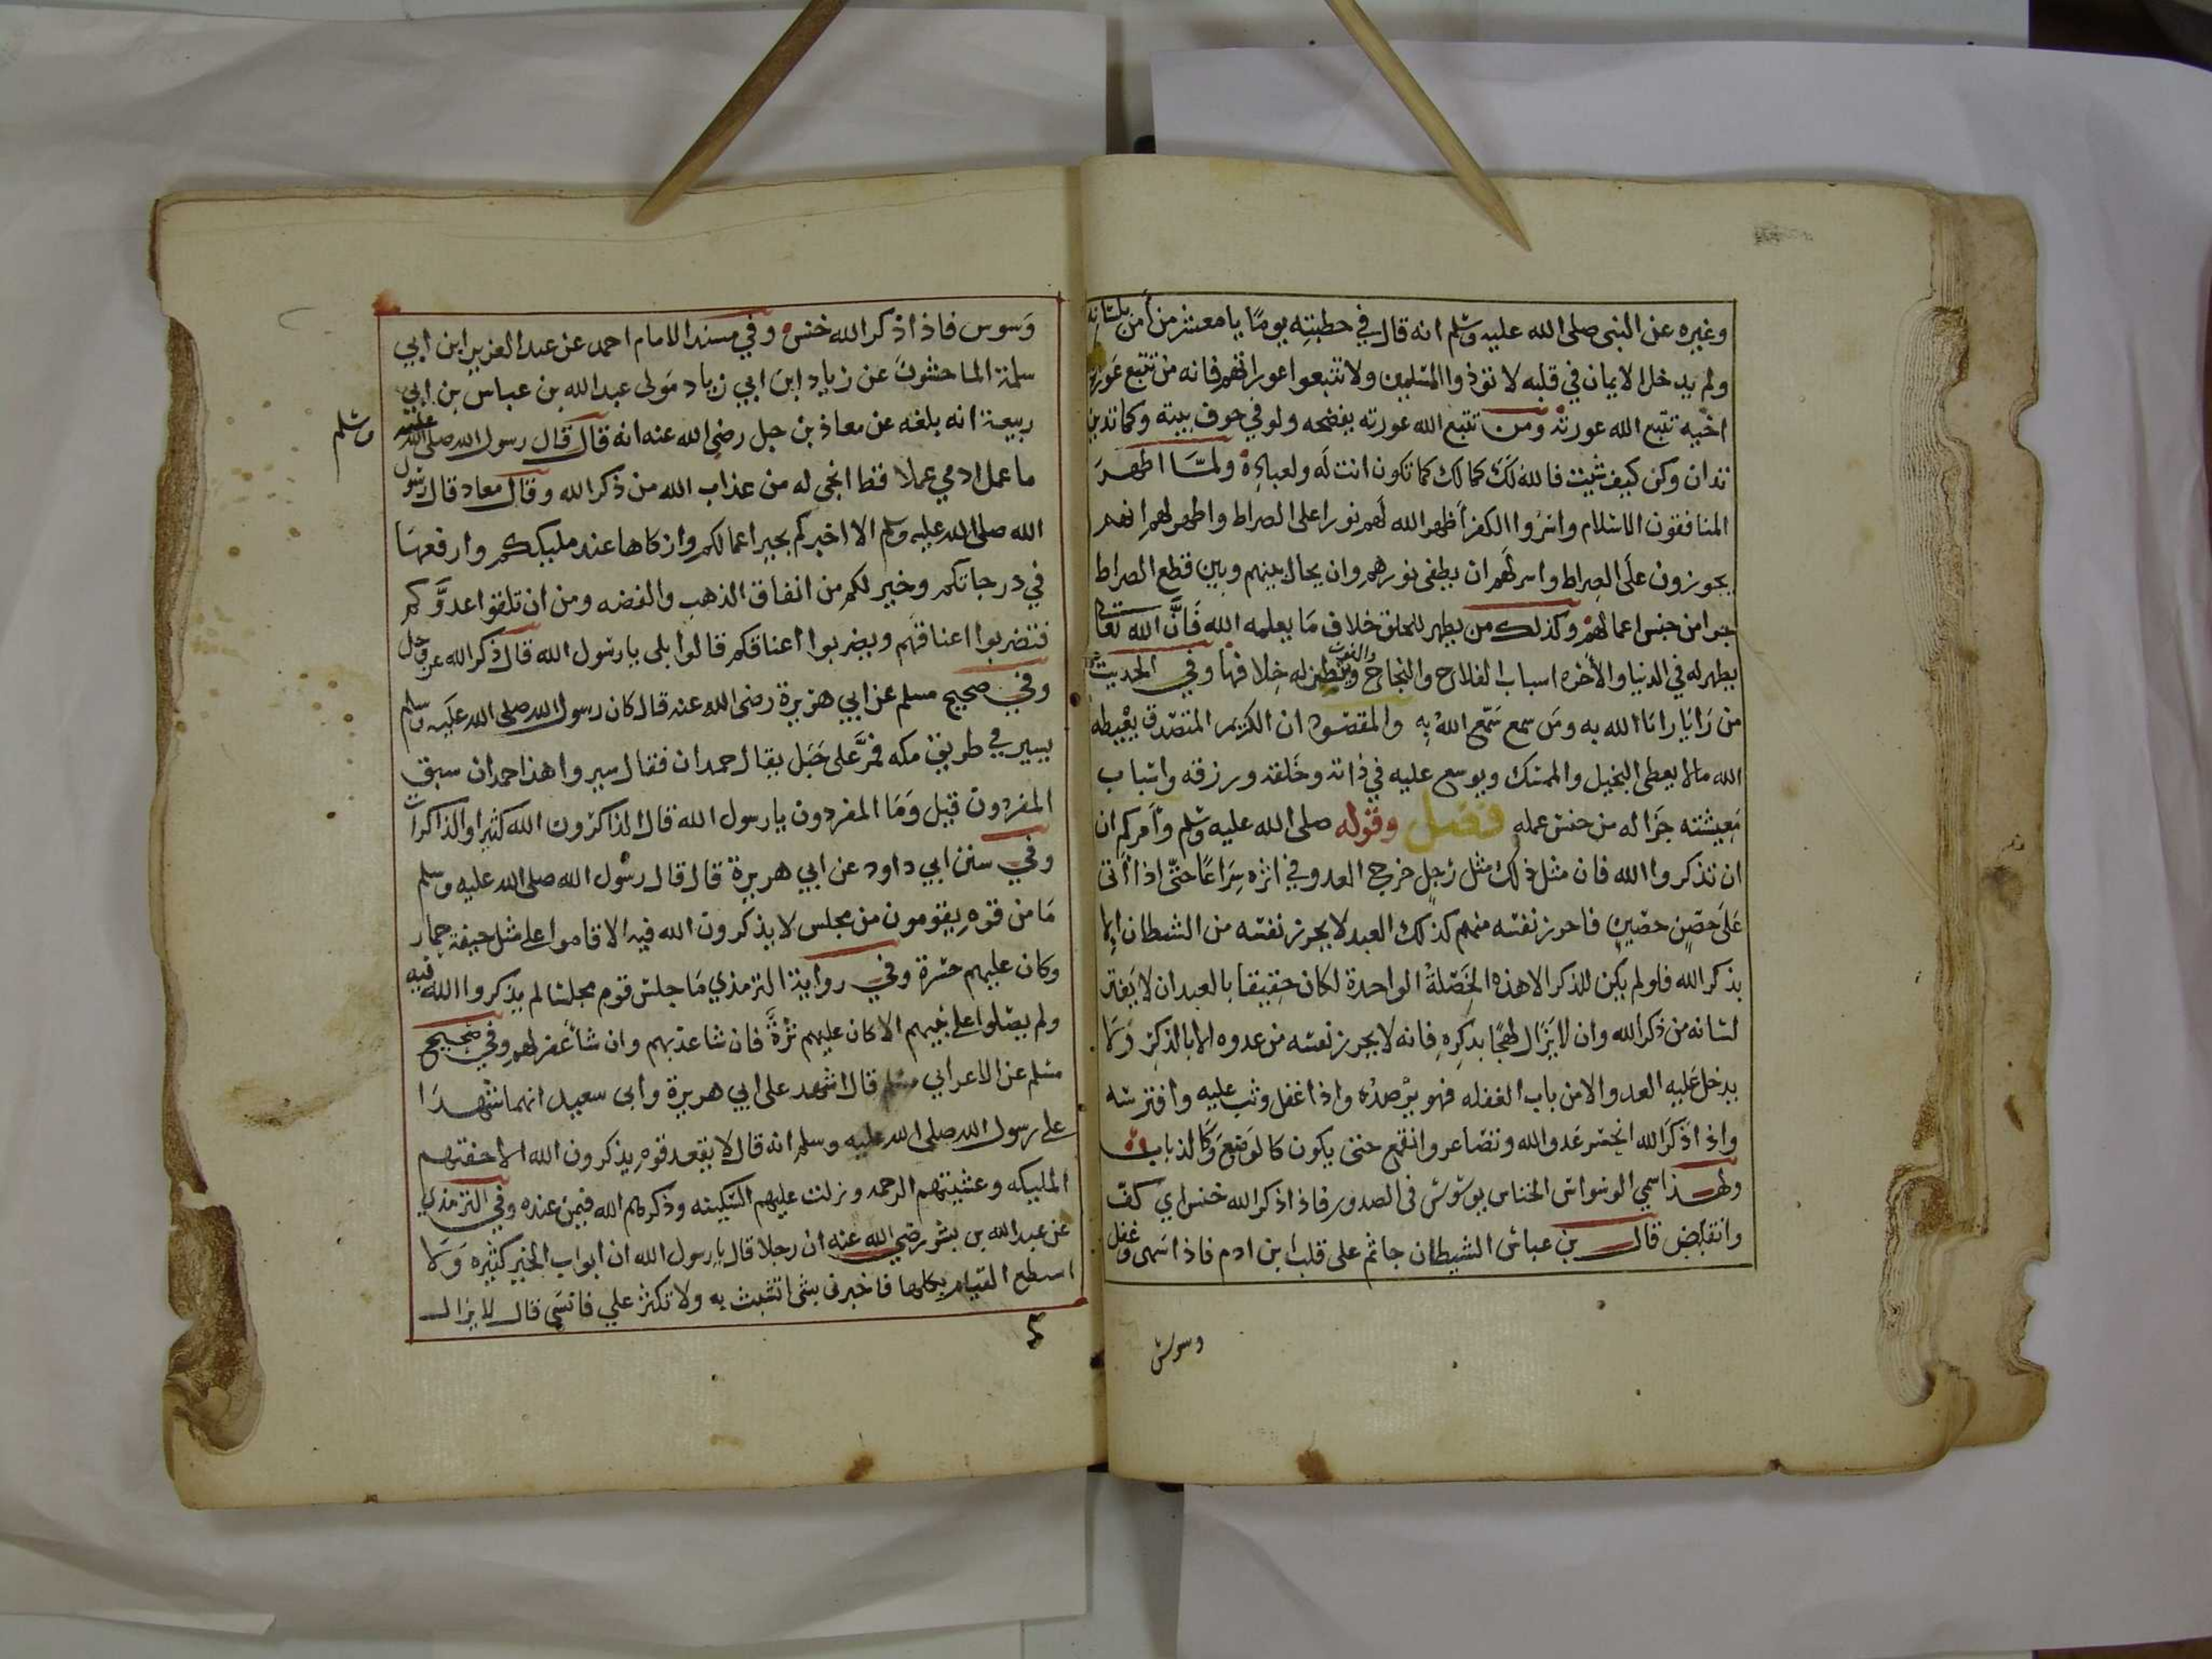 وغيره عن النبي صلى الله عليه وسلم انه قال في خطبته يومًا يا معشر من أمن بلسانه
ولم يدخل الايمان في قلبه لا تؤذوا المسلمين ولا تتبعوا عوراتهم فانه من تتبع عورة
اخيه تتبع الله عورته ومن تتبع الله عورته يفضحه ولو في جوف بيته وكما تدين
تدان وكن كيف شيت فالله لك كما لك كما تكون انت له ولعباده ولما اظهر
المنافقون الاسلام واسروا الكفر أظهر الله لهم نورا على الصراط واظهر لهم انهم
يجوزون على الصراط واسر لهم ان يطفى نورهم وان يحال بينهم وبين قطع الصراط
جزا من جنس اعمالهم وكذلك من يظهر للخلق خلاف ما يعلمه الله فان الله تعالى
يظهر له في الدنيا والأخره اسباب الفلاح والنجاح والفوز ويبطن له خلافها وفي الحديث
من رَايَا رايَا الله به ومن سمع سمّع الله به والمقصود ان الكريم المتصدق يعطيه
الله مالا يعطى البخيل والممسك ويوسع عليه في ذاته وخلقه ورزقه واسباب
معيشته جزا له من جنس عمله فصل وقوله صلى الله عليه وسلم وأمركم ان
ان تذكروا الله فان مثل ذلك مثل رجل خرج العدو في اثره سراعًا حتى اذا أتى
على حصن حصين فاحرز نفسه منهم كذلك العبد لا يحرز نفسه من الشيطان الا
بذكر الله فلو لم يكن للذكر الا هذه الخصلة الواحدة لكان حقيقا بالعبد ان لا يفتر
لسانه من ذكر الله وان لا يزال لهجًا بذكره فانه لا يحرز نفسه من عدوه الا بالذكر ولا
يدخل عليه العدو الا من باب الغفله فهو يرصده واذا غفل وثب عليه وافترسه
واذا ذكر الله انخنس عدو الله وتصاغر وانقمع حتى يكون كالوصع وكالذباب
ولهذا سمي الوسواس الخناس يوسوس في الصدور فاذا ذكر الله خنس اي كف
وانقبض قال بن عباس الشيطان جاثم على قلب أبن ادم فاذا سهى وغفل
وسوس
وسوس فاذا ذكر الله خنس وفي مسند الامام احمد عن عبد العزيز ابن ابي
سلمة الماجشون عن زياد ابن ابي زياد مولى عبد الله بن عباس بن ابي
ربيعة انه بلغه عن معاذ بن جبل رضى الله عنه انه قال قال رسول الله صلى الله عليه
وسلم
ما عمل ادمي عملا قط انجى له من عذاب الله من ذكر الله وقال معاذ قال رسول
الله صلى الله عليه وسلم الا اخبركم بخير اعمالكم وازكاها عند مليككم وارفعها
في درجاتكم وخير لكم من انفاق الذهب والفضه ومن ان تلقوا عدوَّكم
فتضربوا اعناقهم ويضربوا اعناقكم قالوا بلى يا رسول الله قال ذكر الله عز وجل
وفي صحيح مسلم عن ابي هريرة رضى الله عنه قال كان رسول الله صلى الله عليه وسلم
يسير في طريق مكه فمرَّ على جبل يقال حمدان فقال سيروا هذا حمدان سبق
المفردون قيل وما المفردون يا رسول الله قال الذاكرون الله كثيرا والذاكرات
وفي سنن ابي داود عن ابي هريرة قال قال رسول الله صلى الله عليه وسلم
ما من قوم يقومون من مجلس لا يذكرون الله فيه الا قاموا على مثل جيفة حمار
وكان عليهم حسرة وفي رواية الترمذي ما جلس قوم مجلسا لم يذكروا الله فيه
ولم يصلوا على نبيهم الا كان عليهم ترة فان شا عذبهم وان شا غفر لهم وفي صحيح
مسلم عن الاعرابي مسلم قال اشهد على ابي هريرة وابى سعيد انهما شهدا
على رسول الله صلى الله عليه وسلم انه قال لا يقعد قوم يذكرون الله الا حفتهم
المليكه وغشيتهم الرحمه ونزلت عليهم السكينه وذكرهم الله فيمن عنده وفي الترمذي
عن عبد الله بن بشر رضى الله عنه ان رجلا قال يا رسول الله ان ابواب الخير كثيره ولا
اسطع القيام بكلها فاخبرنى بشى اتشبث به ولا تكثر علي فانسى قال لا يزال